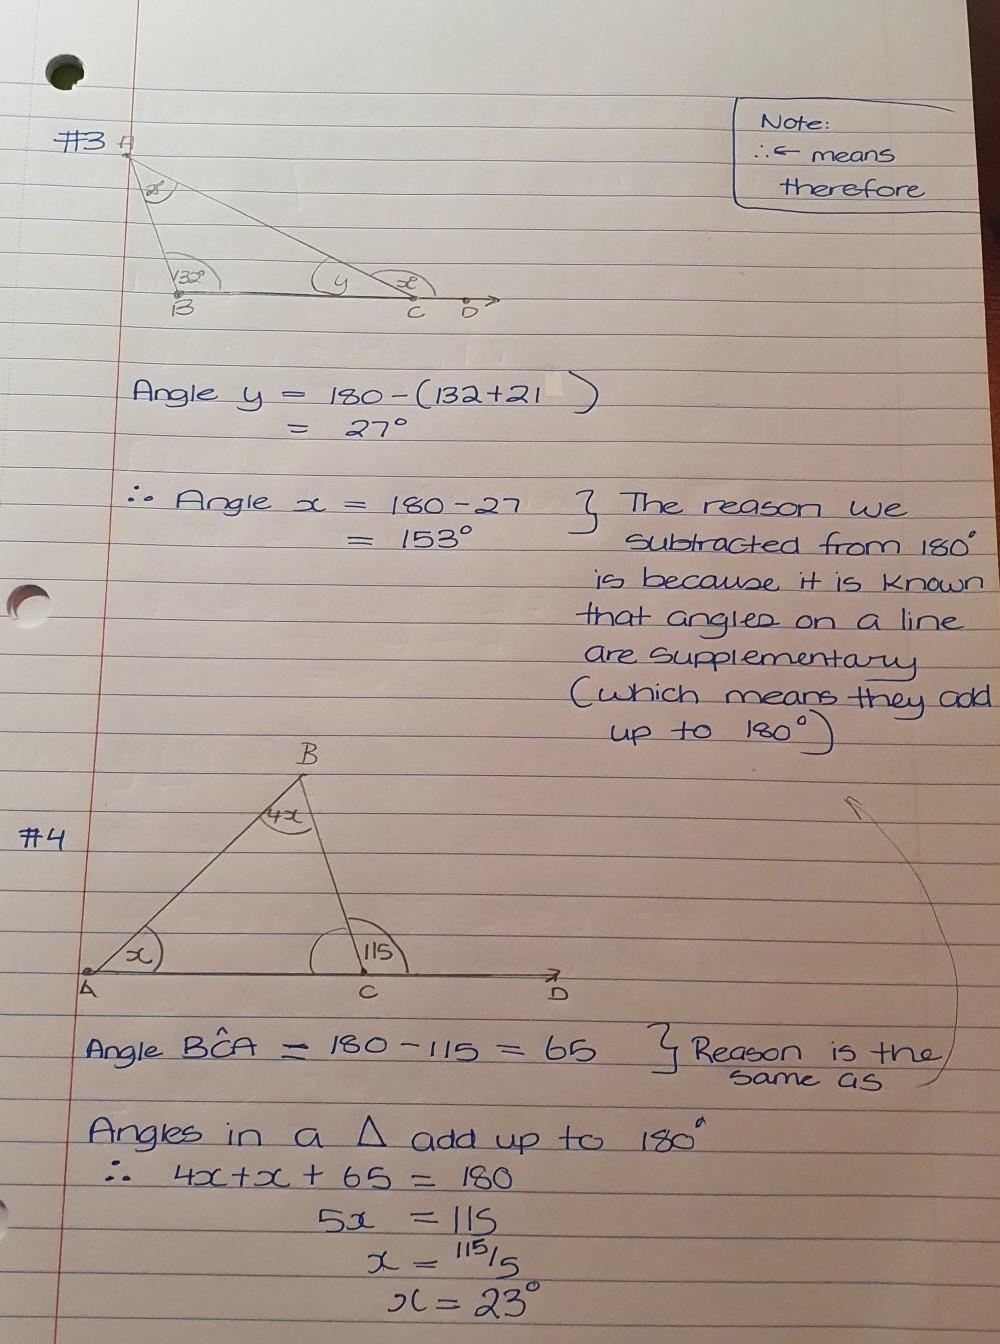 Note:
∴ ← means
therefore
#3 A
132°
y
x
B
C
D
Angle y = 180 - (132+21)
= 27°
∴ Angle x = 180 - 27 } The reason we
= 153° subtracted from 180°
is because it is known
that angles on a line
are supplementary
(which means they add
up to 180°)
B
#4
4x
x
115
A
C
D
Angle BĈA = 180 - 115 = 65 } Reason is the
same as
Angles in a Δ add up to 180°
∴ 4x+x + 65 = 180
5x = 115
x = 115/5
x = 23°